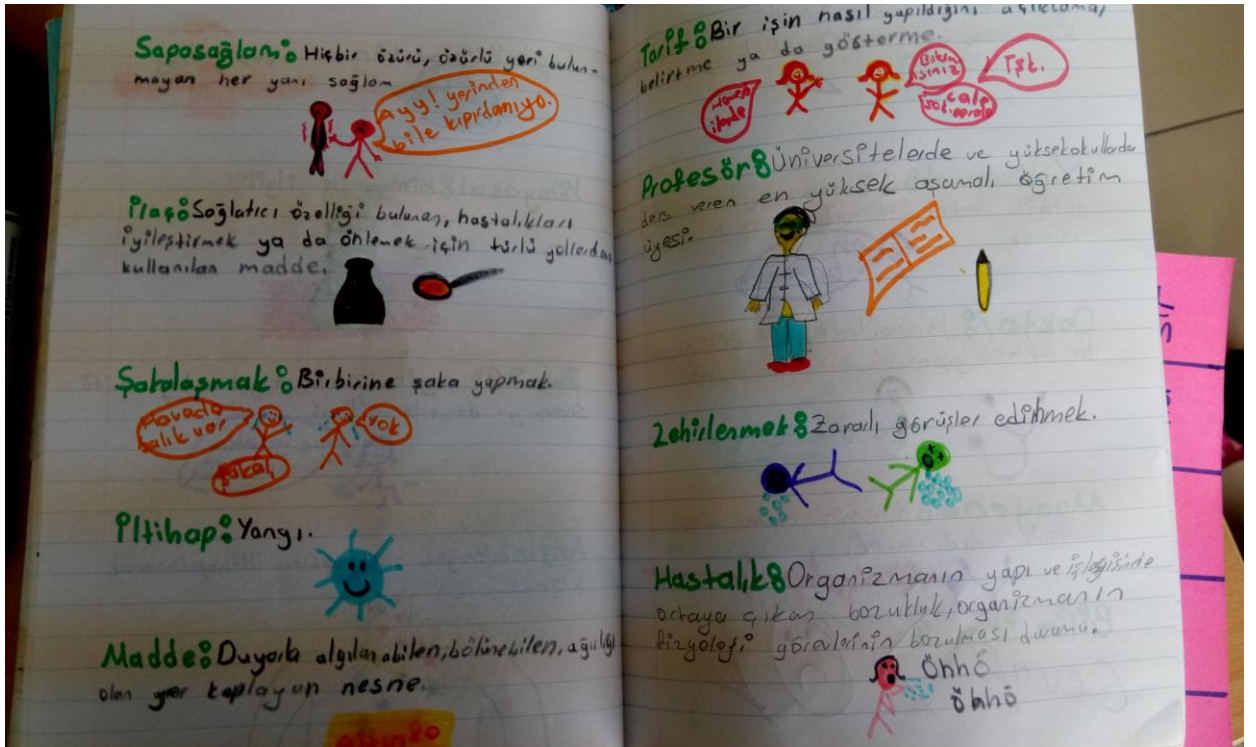 Sapasağlam: Hiçbir özürü, özürlü yeri bulun-
mayan her yanı sağlam
Ayy! yerinden
bile kıpırdamıyo.
İlaç: Sağlatıcı özelliği bulunan, hastalıkları
iyileştirmek ya da önlemek için türlü yollardan
kullanılan madde.
Şakalaşmak: Birbirine şaka yapmak.
Havada
balık var
yok
şaka!
İltihap: Yangı.
Madde: Duyarla algılanabilen, bölünebilen, ağırlığı
olan yer kaplayan nesne.
Tarif: Bir işin nasıl yapıldığını açıklama,
belirtme ya da gösterme.
Tşk.
Profesör: Üniversitelerde ve yüksekokullarda
ders veren en yüksek aşamalı öğretim
üyesi.
Zehirlenmek: Zararlı görüşler edinmek.
Hastalık: Organizmanın yapı ve işleyişinde
ortaya çıkan bozukluk, organizmanın
fizyoloji görevlerinin bozulması durumu.
Öhhö
öhhö